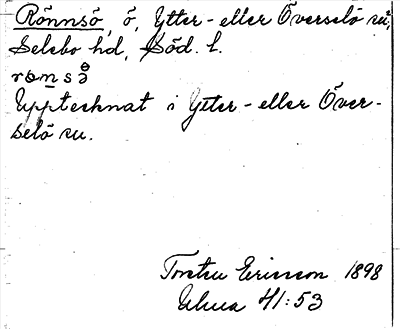 Rönnsö, ö, Ytter- eller Överselö sn,
Selebo hd, Söd. l.
Upptecknat i Ytter- eller Över-
selö sn.
Torsten Ericsson 1898
41:53